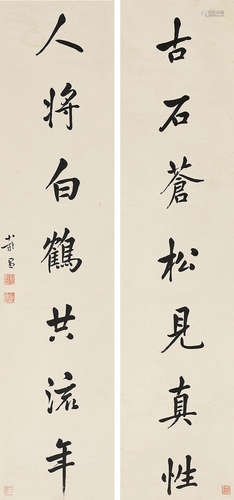 古石蒼松見真性
人將白鶴共流年